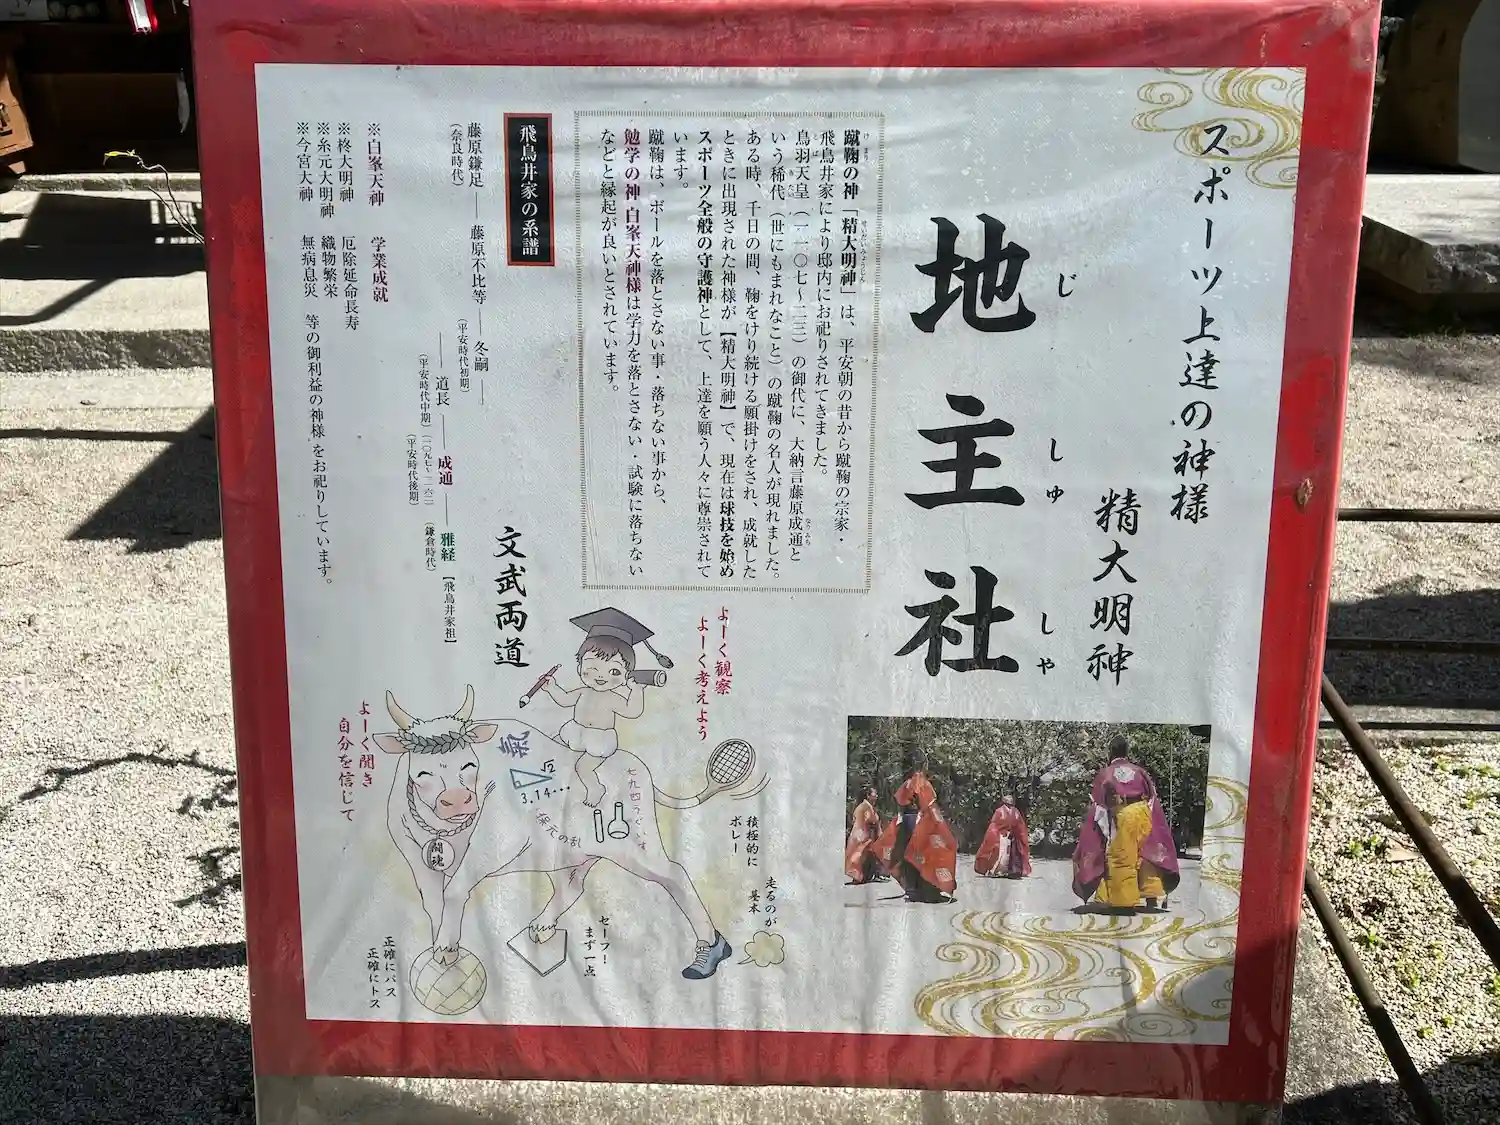 スポーツ上達の神様
精大明神
地主社
じ
しゅ
しゃ
蹴鞠の神「精大明神」は、平安朝の昔から蹴鞠の宗家・
飛鳥井家により邸内にお祀りされてきました。
鳥羽天皇（一一〇七〜二三）の御代に、大納言藤原成通と
いう稀代（世にもまれなこと）の蹴鞠の名人が現れました。
ある時、千日の間、鞠をけり続ける願掛けをされ、成就した
ときに出現された神様が【精大明神】で、現在は球技を始め
スポーツ全般の守護神として、上達を願う人々に尊崇されて
います。
蹴鞠は、ボールを落とさない事・落ちない事から、
勉学の神 白峯天神様は学力を落とさない・試験に落ちない
などと縁起が良いとされています。
飛鳥井家の系譜
藤原鎌足
（奈良時代）
藤原不比等
冬嗣
（平安時代初期）
道長
（平安時代中期）
成通
（一〇九七〜一一六二）
（平安時代後期）
雅経
【飛鳥井家祖】
（鎌倉時代）
※白峯天神 学業成就
※柊大明神 厄除延命長寿
※糸元大明神 織物繁栄
※今宮大神 無病息災 等の御利益の神様をお祀りしています。
文武両道
よーく観察
よーく考えよう
よーく聞き
自分を信じて
闘魂
√2
3.14...
保元の乱
七九四うぐいす
積極的に
ボレー
走るのが
基本
セーフ！
まず一点
正確にパス
正確にトス